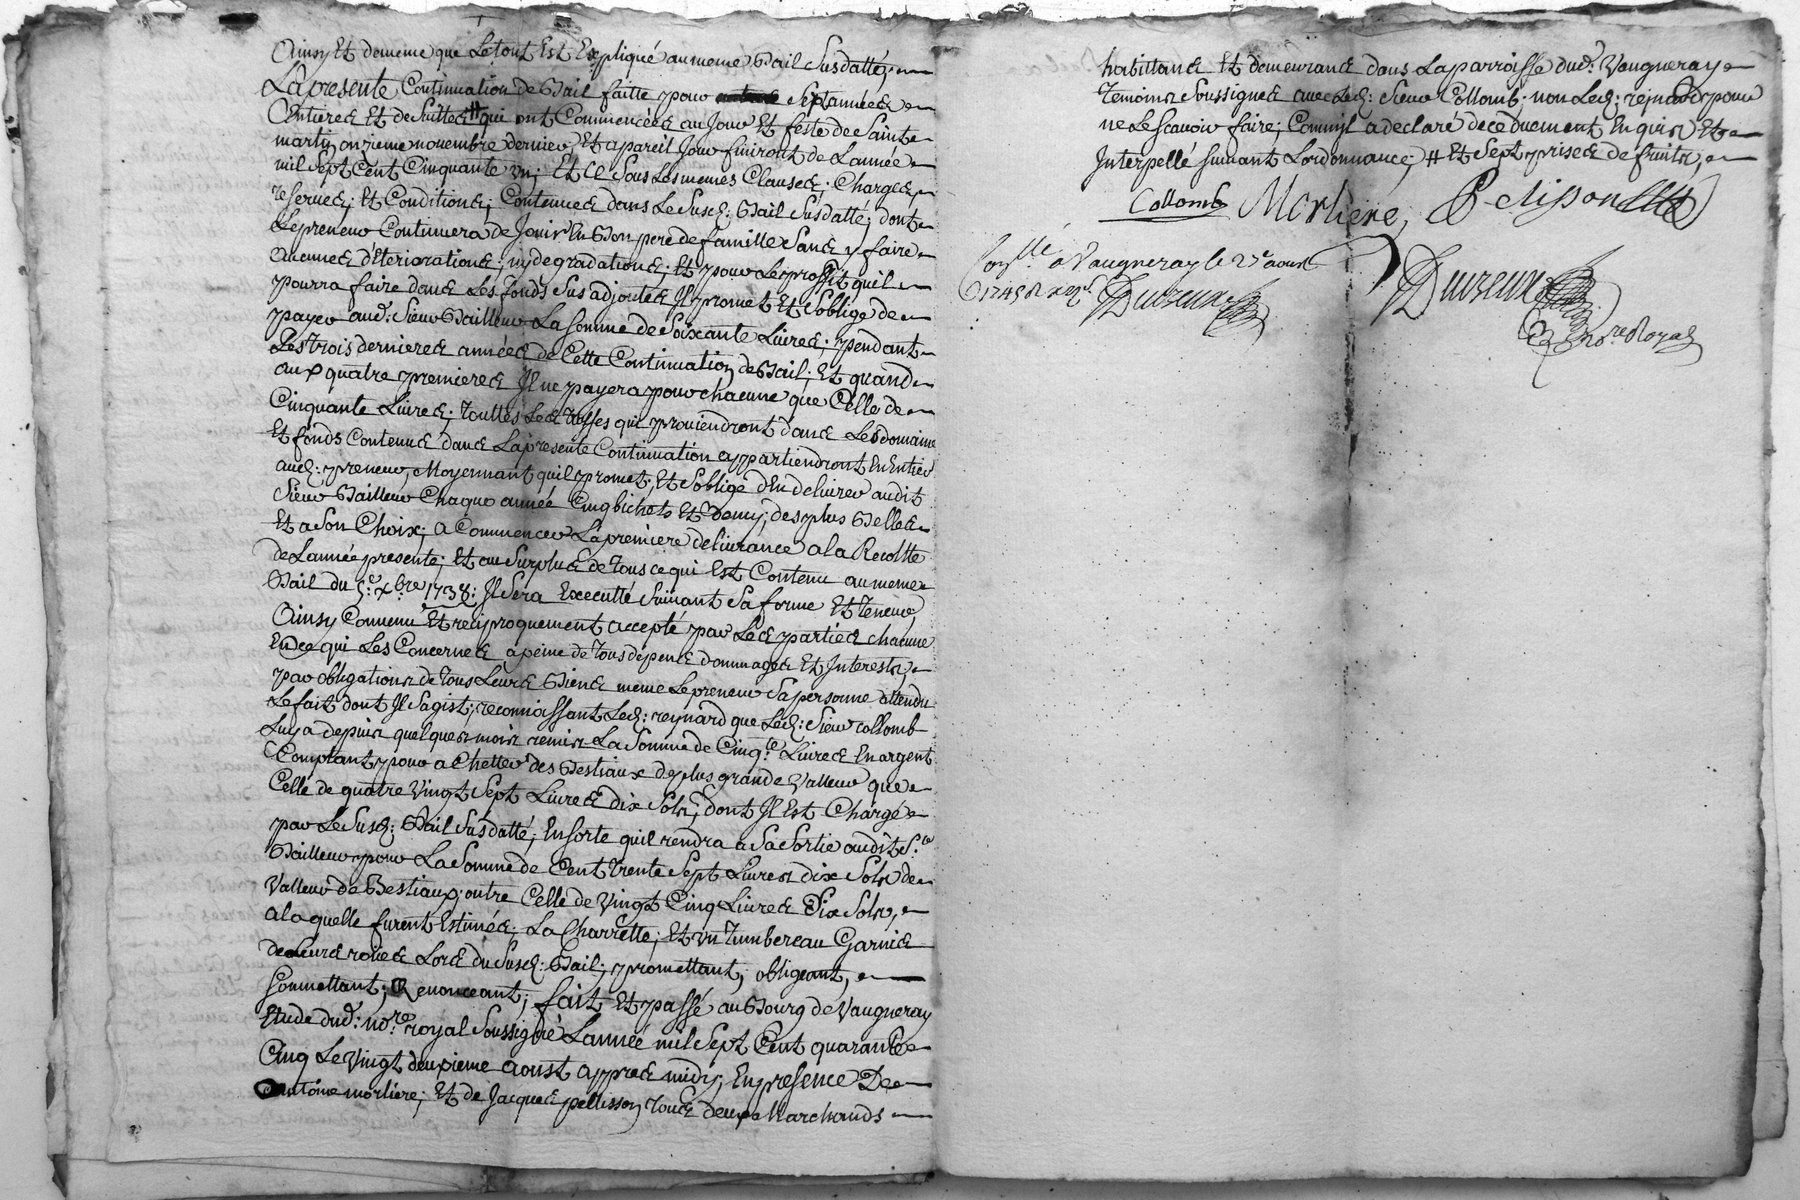 Ainsy Et dememe que Letout Est Expliqué aumeme Bail Susdatté;
Lapresente Continuation de Bail faitte pour Septannéés
Entieres Et deSuittes # qui ont Commencéés au Jour Et feste de Saint
martin onzieme nouembre dernier, Et apareil Jour finiront de Lannéé
mil Sept Cent Cinquante un; Et Ce Sous Lesmemes Clauses; Charges,
reserues; Et Conditions; Contenues dans LeSusd: Bail Susdatté; dont
Lepreneur Continuera de Jouir En Bon pere de famille Sans y faire
aucunes déteriorations; ny degradations; Et pour Leproffit quil
pourra faire dans Les fonds Sus adjoutés Il promet Et Soblige de
payer aud: Sieur Bailleur La Somme de Soixante Liures; pendant
Lestrois dernieres annéés de Cette Continuation de Bail; Et quand
aux quatre premieres Il ne payera pour chacune que Celle de
Cinquante Liures; Touttes Les Truffes qui prouiendront dans Lesdomaine
Et fonds Contenus dans Lapresente Continuation appartiendront En Entier
aud: preneur, Moyennant quil promet; Et Soblige dEn deliurer audit
Sieur Bailleur Chaque année Cinq bichets Et demy; des plus Belles
Et a Son Choix; a Commencer La premiere deliurance a la Recoltte
de Lannéé presente; Et au Surplus de Tous ce qui Est Contenu au meme
Bail du 5.e xbre 1738: Il Sera Executté Suiuant Sa forme Et Teneur,
Ainsy Conuenu Et reciproquement accepté par Les parties chacune
En ce qui Les Concernes a peine de Tous dépens dommages Et Interests,
par obligations de Tous Leurs Biens meme Lepreneur Sa personne attendu
Le fait dont Il Sagist; reconnoissant Led: reynard que Led: Sieur Collomb
Luy a depuis quelques mois remis La Somme de Cinq.te Liures En argent
Comptant pour a Chetter des Bestiaux deplus grande Valleur que
Celle de quatre Vingt Sept Liures dix Sols, dont Il Est Chargé
par Le Susd: Bail Susdatté; En Sorte quil rendra a Sa Sortie audit S.r
Bailleur pour La Somme de Cent Trente Sept Liures dix Sols de
Valleur de Bestiaux; outre Celle de Vingt Cinq Liures Dix Sols,
a la quelle furent Estimés; La Charrette; Et un Tumbereau Garnis
de Leurs roües Lors du Susd: Bail; promettant; obligeant,
Soumettant; Renonceant; fait Et passé au Bourg de Vaugneray
Etude dud: no.re royal Soussigné Lannéé mil Sept Cent quarante
Cinq Le Vingt deuxieme aoust appres midy; En presence De
antoine morliere; Et de Jacques pellisson Tous deux Marchands
habittans Et demeurans dans Laparroisse dud: Vaugneray
Temoins Soussignés auec Led: Sieur Collomb. non Led: reynard pour
ne Le Scauoir faire; Comm'il a declaré de ce duement Enquis Et
Interpellé Suiuant Lordonnance; # Et Sept prises de fruits,
Collomb Morliere, Pelisson
Con.llé a Vaugneray le 27e aoust
1745
Duvreux
Duvreux
no.re Royal